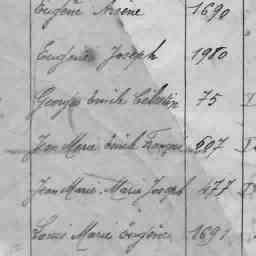 Eugène Arsène 1690
Eugène Joseph 1980
Georges Emile Célestin 75 I
Jean Marie Emile François 607 I
Jean Marie Marie Joseph 477 I
Louis Marie Eugène 1691